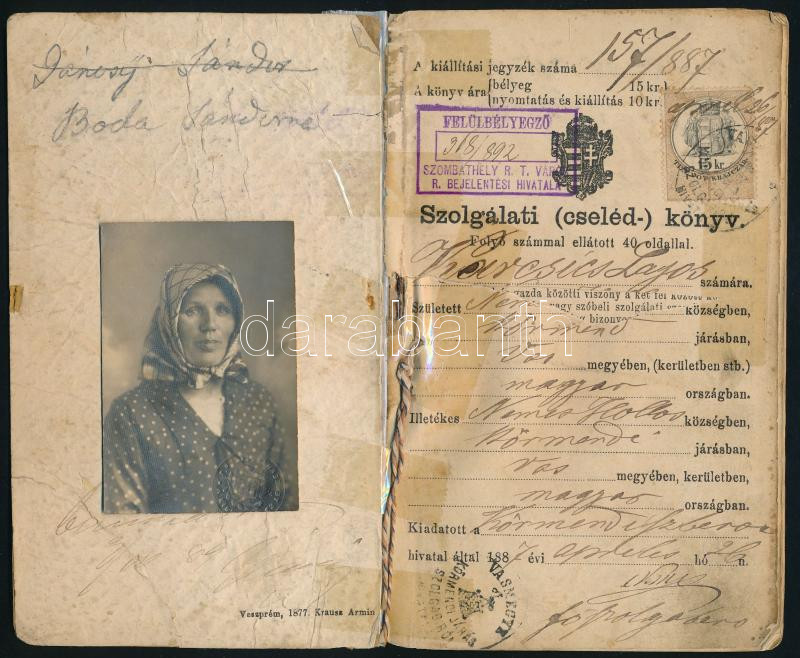 Jánosy Sándor
Boda Sándorné
Veszprém, 1877. Krausz Armin
A kiállítási jegyzék száma 157/887
A könyv ára { bélyeg 15 kr.
nyomtatás és kiállítás 10 kr.
15 kr.
FELÜLBÉLYEGZŐ
918/892
SZOMBATHELY R. T. VÁROS
R. BEJELENTÉSI HIVATALA
Szolgálati (cseléd-) könyv.
Folyó számmal ellátott 40 oldallal.
Lajos számára.
gazda közötti viszony a két fél között
vagy szóbeli szolgálati
bizony
Született községben,
Körmend járásban,
Vas megyében, (kerületben stb.)
magyar országban.
Illetékes Nemes Hollós községben,
Körmendi járásban,
Vas megyében, kerületben,
magyar országban.
Kiadatott a Körmendi
hivatal által 1887 évi április hó 26 n.
főszolgabíró
VASMEGYE
KÖRMENDI JÁRÁS
darabanth